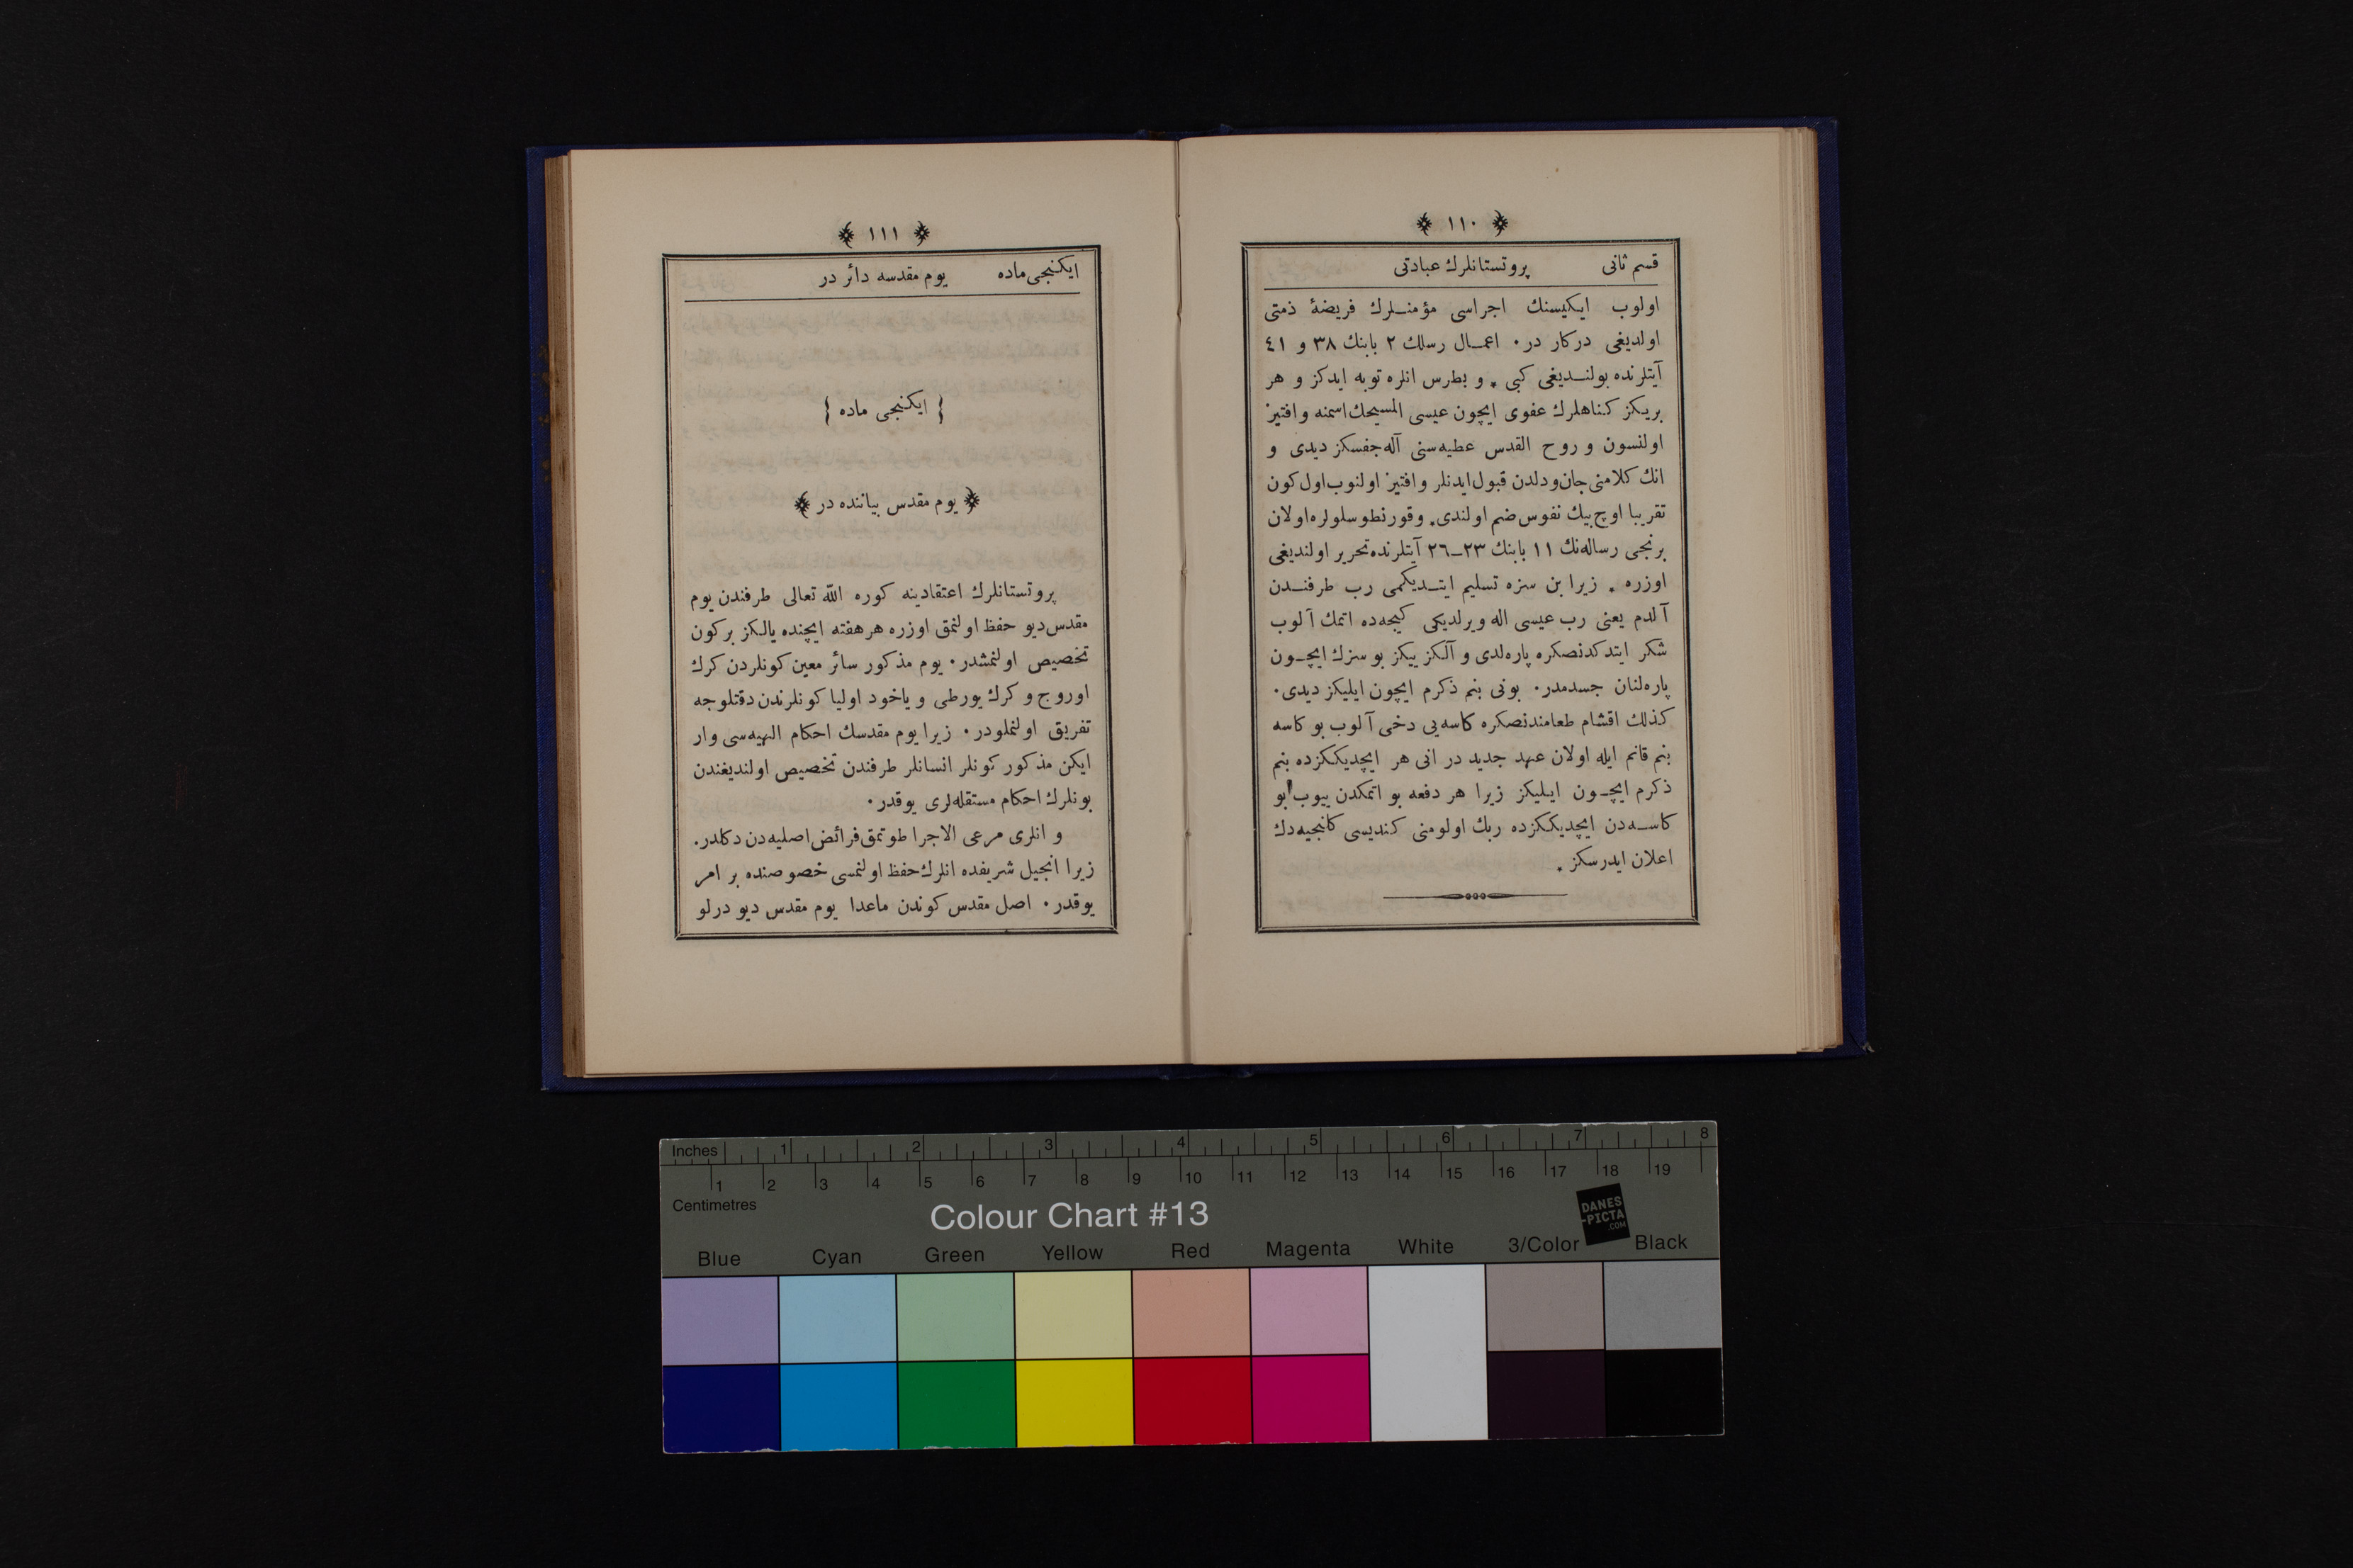 ١١٠
قسم ثانی پروتستانلرك عبادتی
اولوب ایكیسنك اجراسی مؤمنـلرك فریضۀ ذمتی
اولدیغی دركار در٠ اعمـال رسلك ٢ بابنك ٣٨ و ٤١
آیتلرنده بولنـدیغی كبی ٭ و بطرس انلره توبه ایدكز و هر
بریكز كناهلرك عفوی ایچون عیسی المسیحك اسمنه وافتیز
اولنسون و روح القدس عطیه‌سنی آله‌جقسكز دیدی و
انك كلامنی جان‌ودلدن قبول ایدنلر وافتیز اولنوب اول كون
تقریبا اوچ بیك نفوس ضم اولندی٭ وقورنطوسلولره اولان
برنجی رساله‌نك ١١ بابنك ٢٣ـ٢٦ آیتلرنده تحریر اولندیغی
اوزره ٭ زیرا بن سزه تسلیم ایتـدیكمی رب طرفنـدن
آلدم یعنی رب عیسی اله ویرلدیكی كیجه‌ده اتمك آلوب
شكر ایتدكدنصكره پاره‌لدی و آلكز ییكز بو سزك ایچـون
پاره‌لنان جسدمدر٠ بونی بنم ذكرم ایچون ایلیكز دیدی٠
كذلك اقشام طعامندنصكره كاسه‌یی دخی آلوب بو كاسه
بنم قانم ایله اولان عهد جدید در انی هر ایچدیككزده بنم
ذكرم ایچـون ایلیكز زیرا هر دفعه بو اتمكدن ییوب بو
كاسـه‌دن ایچدیككزده ربك اولومنی كندیسی كلنجیه‌دك
اعلان ایدرسكز ٭
١١١
ایكنجی ماده یوم مقدسه دائر در
{ ایكنجی ماده }
یوم مقدس بیاننده در
پروتستانلرك اعتقادینه كوره اللّه تعالی طرفندن یوم
مقدس دیو حفظ اولنمق اوزره هر هفته ایچنده یالكز بر كون
تخصیص اولنمشدر٠ یوم مذكور سائر معین كونلردن كرك
اوروج و كرك یورطی و یاخود اولیا كونلرندن دقتلوجه
تفریق اولنملودر٠ زیرا یوم مقدسك احكام الهیه‌سی وار
ایكن مذكور كونلر انسانلر طرفندن تخصیص اولندیغندن
بونلرك احكام مستقله‌لری یوقدر٠
و انلری مرعی الاجرا طوتمق فرائض اصلیه‌دن دكلدر.
زیرا انجیل شریفده انلرك حفظ اولنمسی خصوصنده بر امر
یوقدر٠ اصل مقدس كوندن ماعدا یوم مقدس دیو درلو
Inches 1 2 3 4 5 6 7 8
1 2 3 4 5 6 7 8 9 10 11 12 13 14 15 16 17 18 19
Centimetres
Colour Chart #13
DANES
-PICTA
.COM
Blue Cyan Green Yellow Red Magenta White 3/Color Black